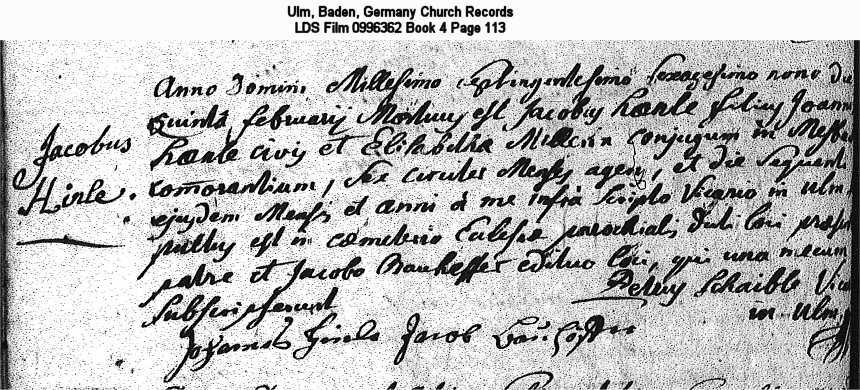 Ulm, Baden, Germany Church Records
LDS Film 0996362 Book 4 Page 113
Anno Domini Millesimo Septingentesimo Sexagesimo nono die
Quinta februarij Mortuus est Jacobus hœnle filius Joann
Jacobus
hœnle civis et Elisabetha conjugum in
Hinle.
comorantium, Sex circiter Menses agens, et die Sequent
ejusdem Mensis et anni à me infra Scripto Vicario in ulm
pultus est in cœmeterio Eclesiæ parochialis dicti loci præsen
patre et Jacobo ædituo loci, qui una mecum
Subscripserunt Petrus Schaible Vica
in Ulm
Johannes Hinle Jacob